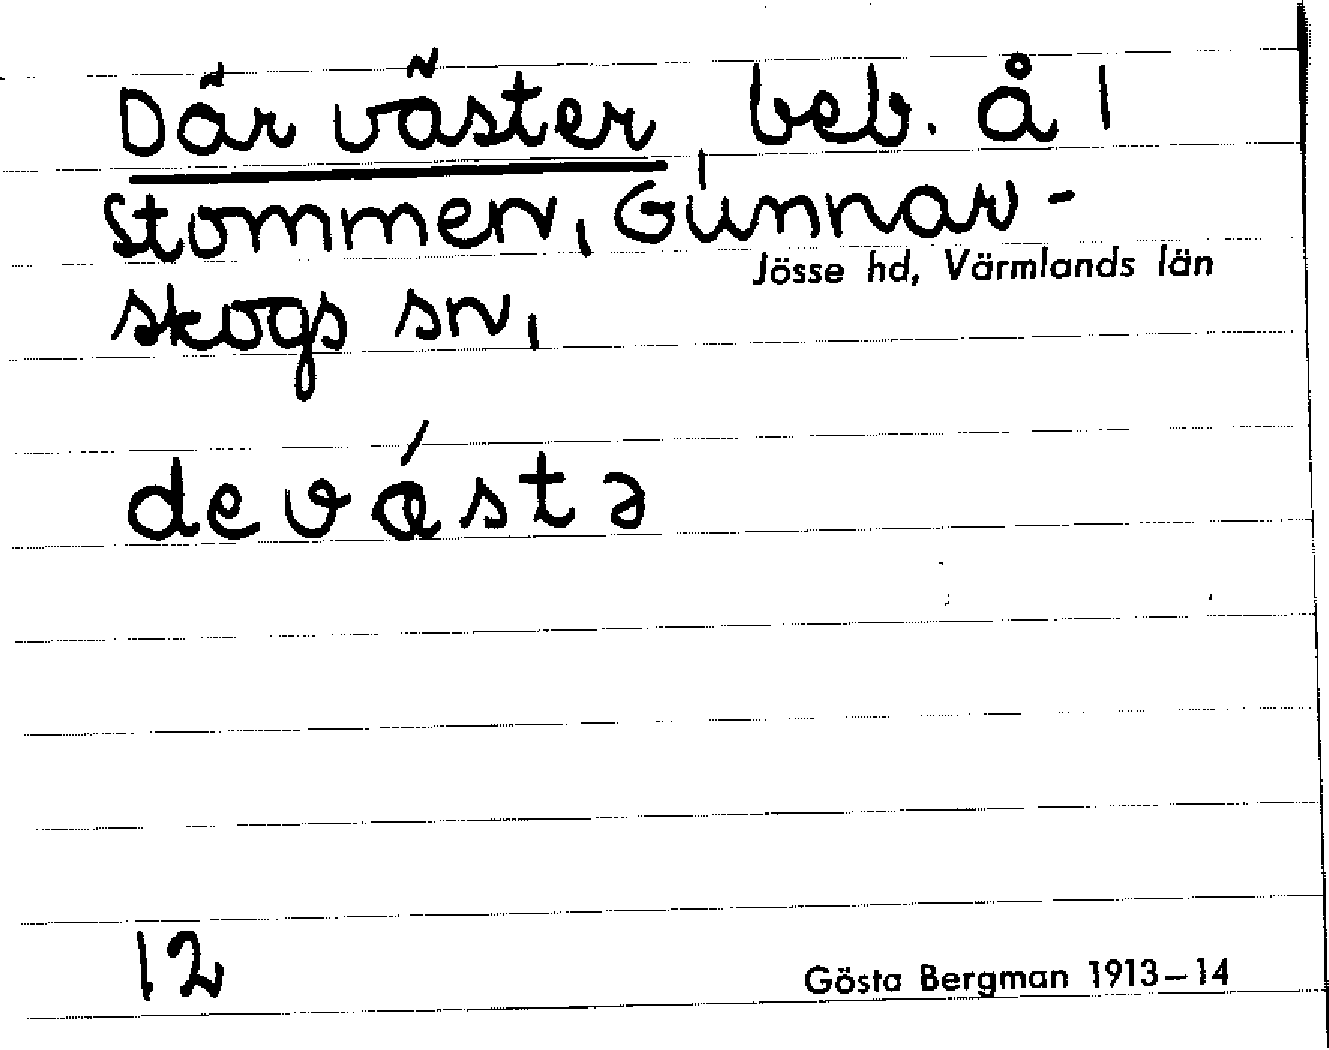 Där väster, beb. å 1
Stommen, Gunnar-
Jösse hd, Värmlands län
skogs sn,
devástə
12
Gösta Bergman 1913–14